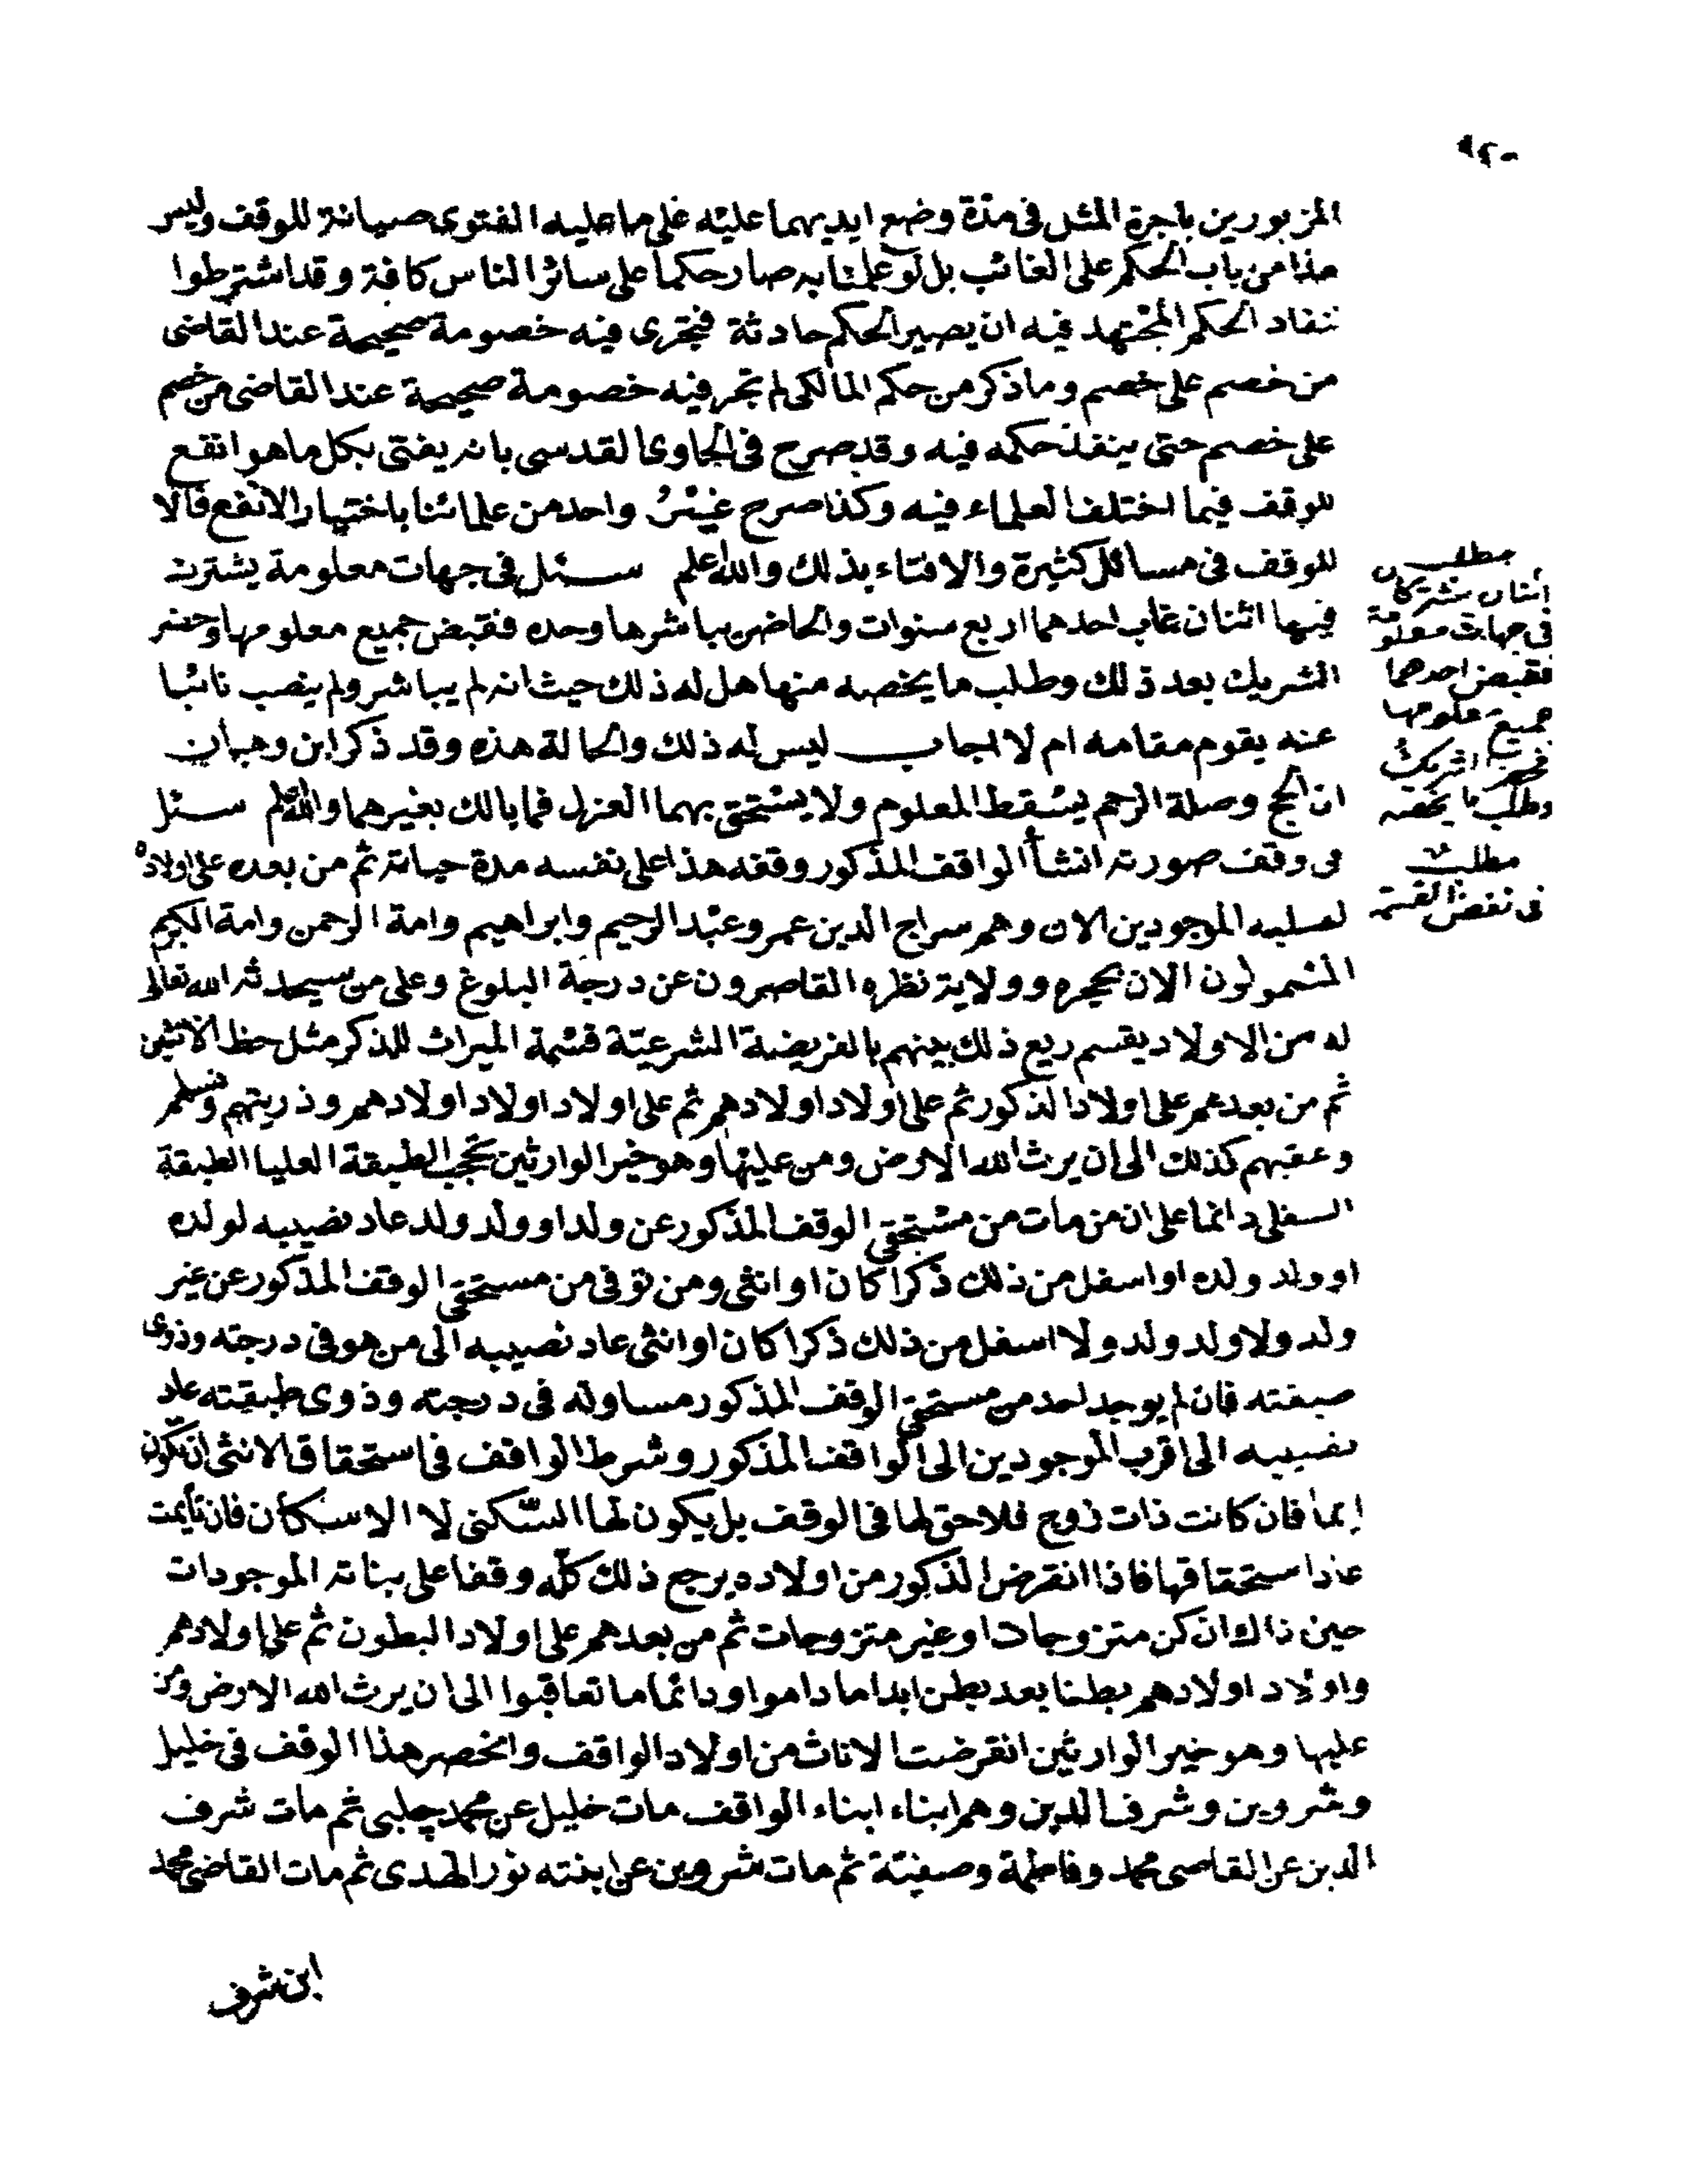 المزبورين باجرة المثل فى مدة وضع ايديهما عليه على ما عليه الفتوى صيانة للوقف وليس
هذا من باب الحكم على الغائب بل لو علمنا به صار حكما على سائر الناس كافة وقد اشترطوا
نفاد الحكم المجتهد فيه ان يصير الحكم حادثة فتجرى فيه خصومة صحيحة عند القاضى
من خصم على خصم وما ذكر من حكم المالكى لم تجر فيه خصومة صحيحة عند القاضى من خصم
على خصم حتى ينفذ حكمه فيه وقد صرح فى الحاوى القدسى بانه يفتى بكل ما هو انفع
للوقف فيما اختلف العلماء فيه وكذا صرح غير واحد من علمائنا باختيار الانفع فالا
للوقف فى مسائل كثيرة والافتاء بذلك والله اعلم سئل فى جهات معلومة يشترك
فيها اثنان غاب احدهما اربع سنوات والحاضر يباشرها وحده فقبض جميع معلومها وحضر
الشريك بعد ذلك وطلب ما يخصه منها هل له ذلك حيث انه لم يباشر ولم ينصب نائبا
عنه يقوم مقامه ام لا اجاب ليس له ذلك والحالة هذه وقد ذكر ابن وهبان
ان الحج وصلة الرحم يسقط المعلوم ولا يستحق بهما العزل فما بالك بغيرهما والله اعلم سئل
فى وقف صورته انشأ الواقف المذكور وقفه هذا على نفسه مدة حياته ثم من بعده على اولاده
لصلبه الموجودين الان وهم سراج الدين عمر وعبد الرحيم وابراهيم وامة الرحمن وامة الكريم
المشمولون الان بحجره وولاية نظره القاصرون عن درجة البلوغ وعلى من سيحدثه الله تعالى
له من الاولاد يقسم ريع ذلك بينهم بالفريضة الشرعية قسمة الميراث للذكر مثل حظ الانثيين
ثم من بعدهم على اولاد الذكور ثم على اولاد اولادهم ثم على اولاد اولاد اولادهم وذريتهم ونسلهم
وعقبهم كذلك الى ان يرث الله الارض ومن عليها وهو خير الوارثين تحجب الطبقة العليا الطبقة
السفلى دائما على ان من مات من مستحقى الوقف المذكور عن ولد او ولد ولد عاد نصيبه لولده
او ولد ولده او اسفل من ذلك ذكرا كان او انثى ومن توفى من مستحقى الوقف المذكور عن غير
ولد ولا ولد ولد ولا اسفل من ذلك ذكرا كان او انثى عاد نصيبه الى من هو فى درجته وذوى
طبقته فان لم يوجد لحد من مستحقى الوقف المذكور مساو له فى درجته وذوى طبقته عاد
نصيبه الى اقرب الموجودين الى الواقف المذكور وشرط الواقف فى استحقاق الانثى ان تكون
ايما فان كانت ذات زوج فلا حق لها فى الوقف بل يكون لها السكنى لا الاسكان فان تأيمت
عاد استحقاقها فاذا انقرض الذكور من اولاده يرجع ذلك كله وقفا على بناته الموجودات
حين ذاك ان كن متزوجات او غير متزوجات ثم من بعدهم على اولاد البطون ثم على اولادهم
واولاد اولادهم بطنا بعد بطن ابدا ما داموا ودائما ما تعاقبوا الى ان يرث الله الارض ومن
عليها وهو خير الوارثين انقرضت الاناث من اولاد الواقف وانحصر هذا الوقف فى خليل
وشروين وشرف الدين وهم ابناء ابناء الواقف مات خليل عن محمد چلبى ثم مات شرف
الدين عن القاضى محمد وفاطمة وصفية ثم مات شروين عن ابنته نور الهدى ثم مات القاضى محمد
ابن شرف
مطلب
اثنان مشتركان
فى جهات معلومة
فقبض احدهما
جميع معلومها
فحضر الشريك
وطلب ما يخصه
مطلب
فى نقض القسمة